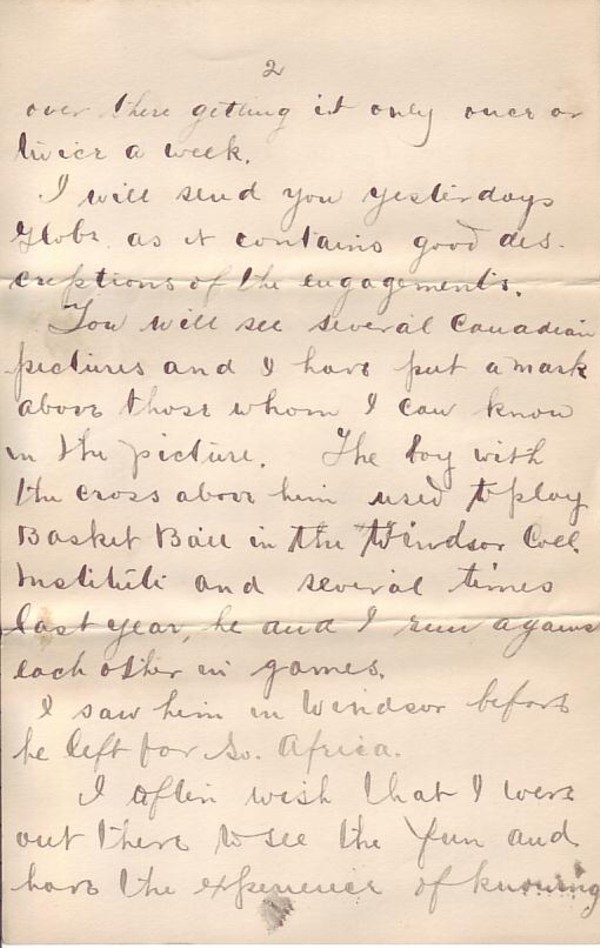 2
over there getting it only once or
twice a week.
I will send you yesterdays
Globe as it contains good des-
criptions of the engagements.
You will see several Canadian
pictures and I have put a mark
above those whom I can know
in the picture. The boy with
the cross above him used to play
Basket Ball in the Windsor Coll.
Institute and several times
last year, he and I run agains
each other in games.
I saw him in Windsor before
he left for So. Africa.
I often wish that I were
out there to see the fun and
have the experience of knowing